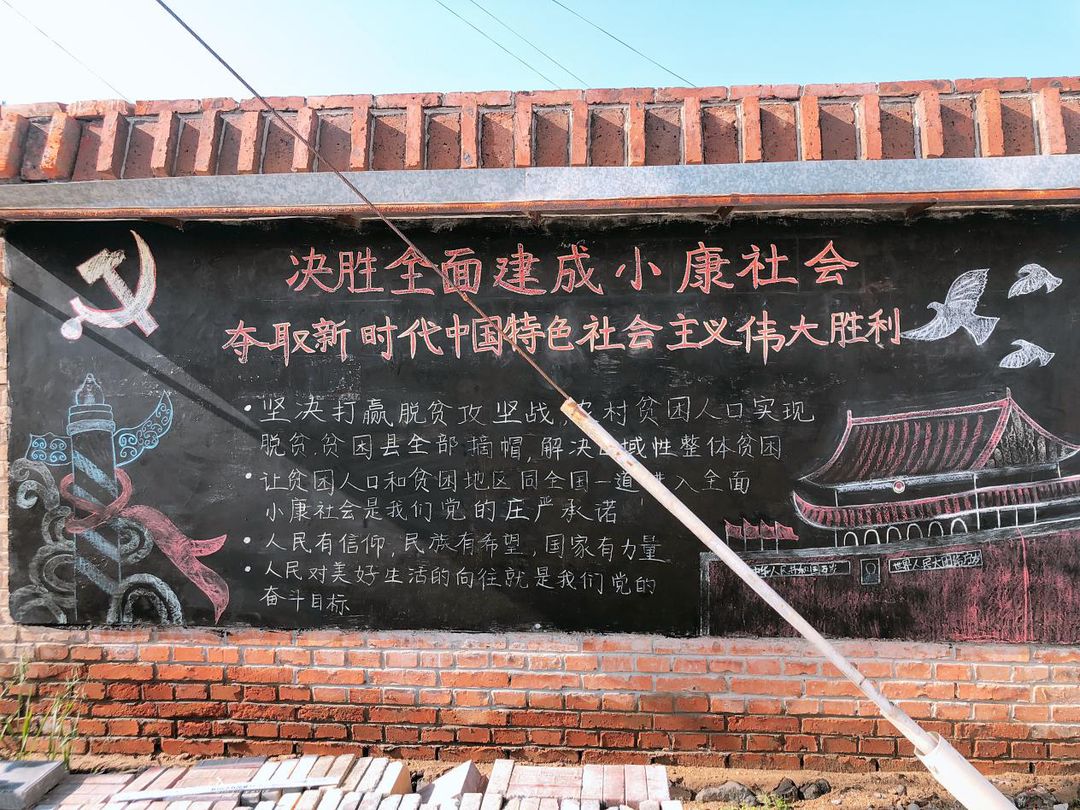 决胜全面建成小康社会
夺取新时代中国特色社会主义伟大胜利
•坚决打赢脱贫攻坚战,农村贫困人口实现
脱贫.贫困县全部摘帽,解决区域性整体贫困
•让贫困人口和贫困地区同全国一道进入全面
小康社会是我们党的庄严承诺
•人民有信仰,民族有希望,国家有力量
•人民对美好生活的向往就是我们党的
奋斗目标
中华人民共和国万岁
世界人民大团结万岁